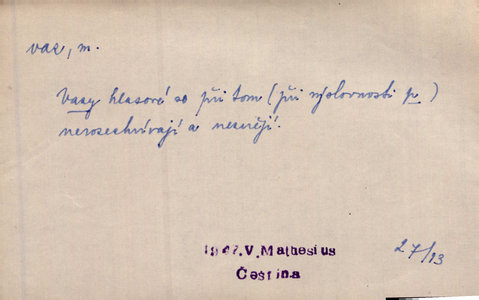 vaz, m.
Vazy hlasové se při tom (při výslovnosti p)
nerozechvívají a neznějí.
V. Mathesius
Čeština
27/13